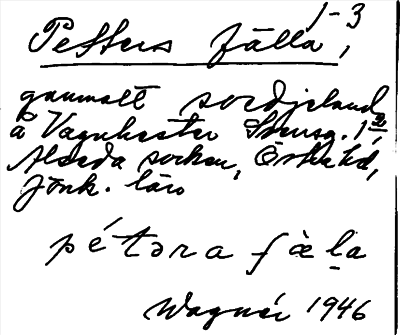 1-3
Petters fälla,
gammalt svedjeland
å Vagnhester Stensg. 1 2/,
Alseda socken, Östra hd,
Jönk. län
pétəra fæ̀la
Wagnér 1946